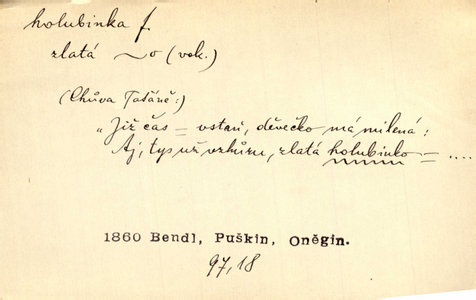 holubinka f.
zlatá ~o (vok.)
(Chůva Taťáně:)
„Již čas = vstaň, děvečko má milená:
Aj, tys už vzhůru, zlatá holubinko = ....
1860 Bendl, Puškin, Oněgin.
97,18